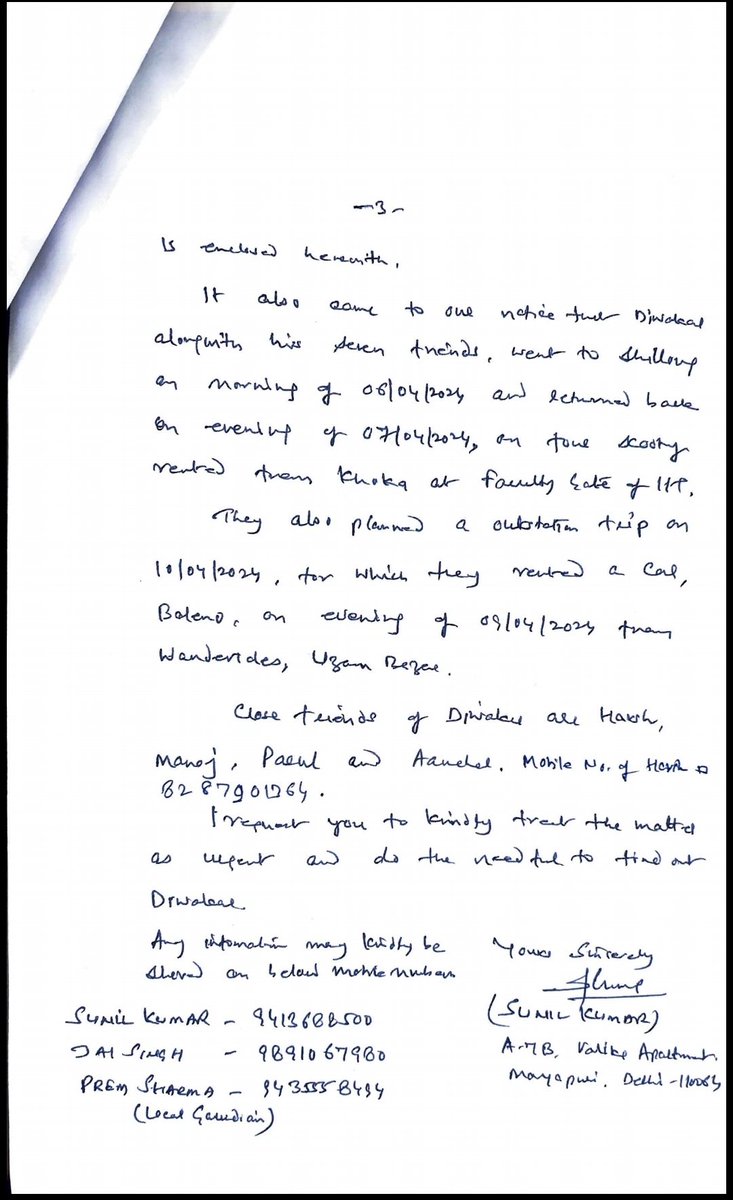 -3-
is enclosed herewith.
It also came to our notice that Diwakar
alongwith his seven friends, went to Shillong
on morning of 06/04/2024 and returned back
on evening of 07/04/2024, on four scooty
rented from Khoka at faculty Gate of IIT.
They also planned a outstation trip on
10/04/2024, for which they rented a Car,
Baleno, on evening of 09/04/2024 from
Wanderides, Uzan Bazar.
Close friends of Diwakar are Harsh,
Manoj, Parul and Aanchal. Mobile No. of Harsh is
8287901764.
I request you to kindly treat the matter
as urgent and do the needful to find out
Diwakar
Any information may kindly be
shared on below mobile numbers
Yours Sincerely
(SUNIL KUMAR)
A-7B, Apartment,
Mayapuri, Delhi-110064
SUNIL KUMAR - 9413688500
JAI SINGH - 9891067980
PREM SHARMA - 9435558494
(Local Guardian)